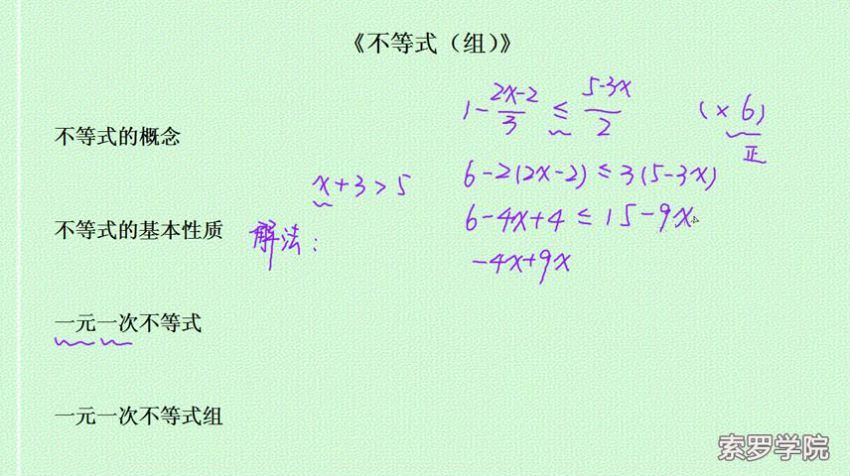 《不等式（组）》
不等式的概念
不等式的基本性质
一元一次不等式
一元一次不等式组
x+3>5
解法：
1-\frac{2x-2}{3}≤\frac{5-3x}{2} (×6)
正
6-2(2x-2)≤3(5-3x)
6-4x+4≤15-9x
-4x+9x
索罗学院